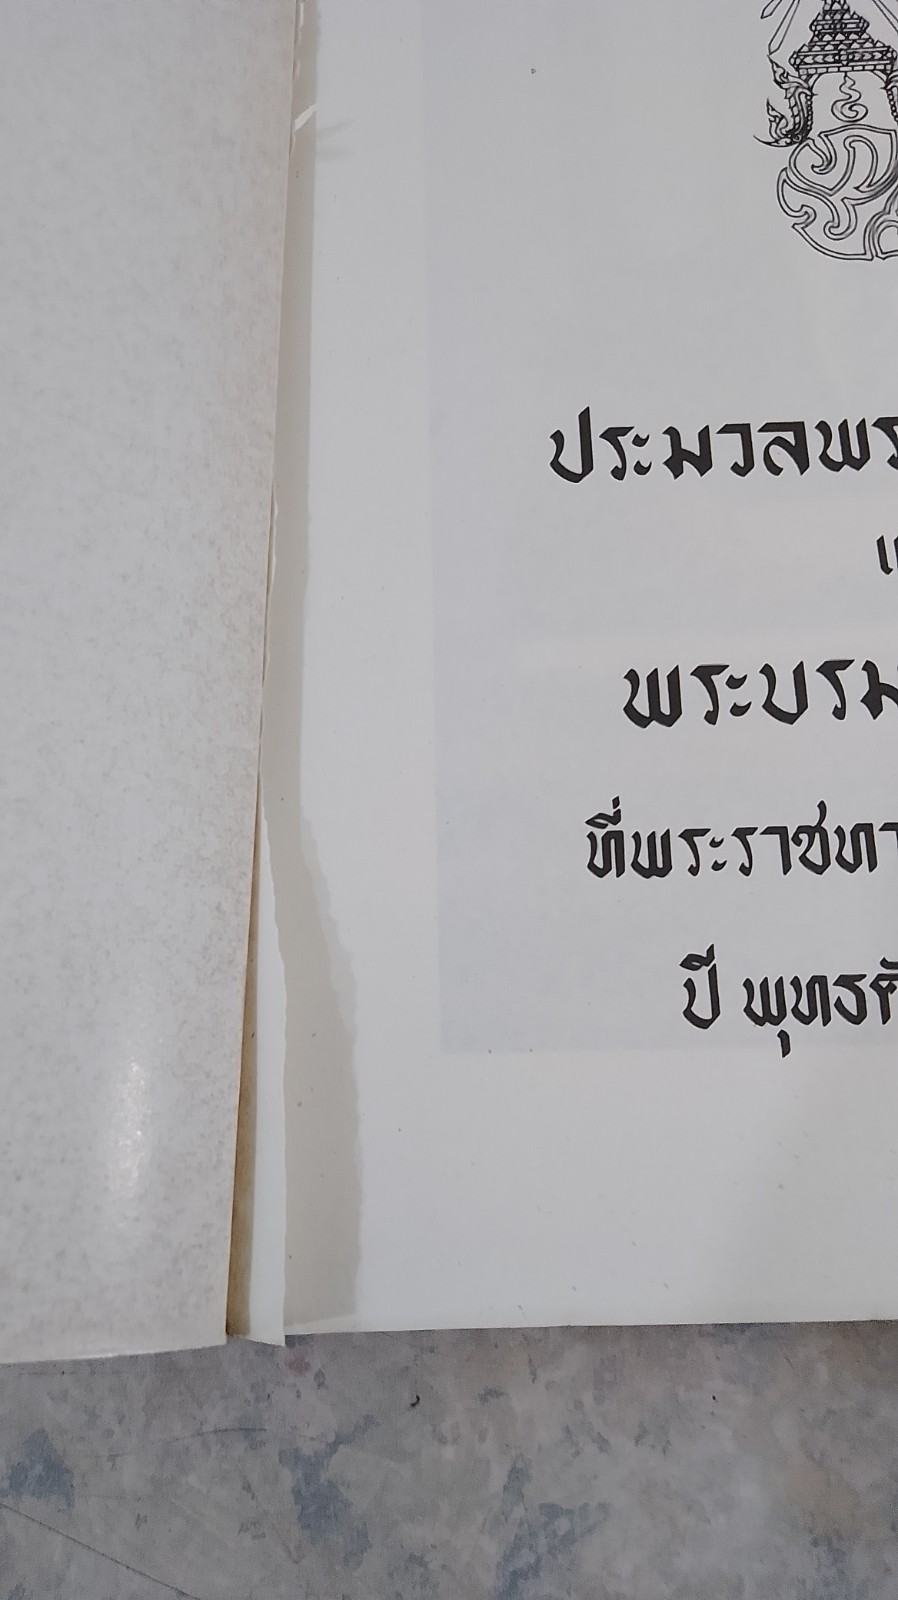 ประมวลพร
พระบรม
ที่พระราชทา
ปี พุทธศั